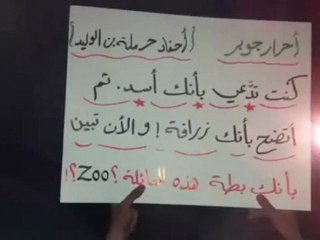 أحرار جوبر (أحفاد حرملة بن الوليد)
كنت تدّعي بأنك أسد. ثم
اتضح بأنك زرافة! والآن تبين
بأنك بطة هذه العائلة؟ Zoo؟!